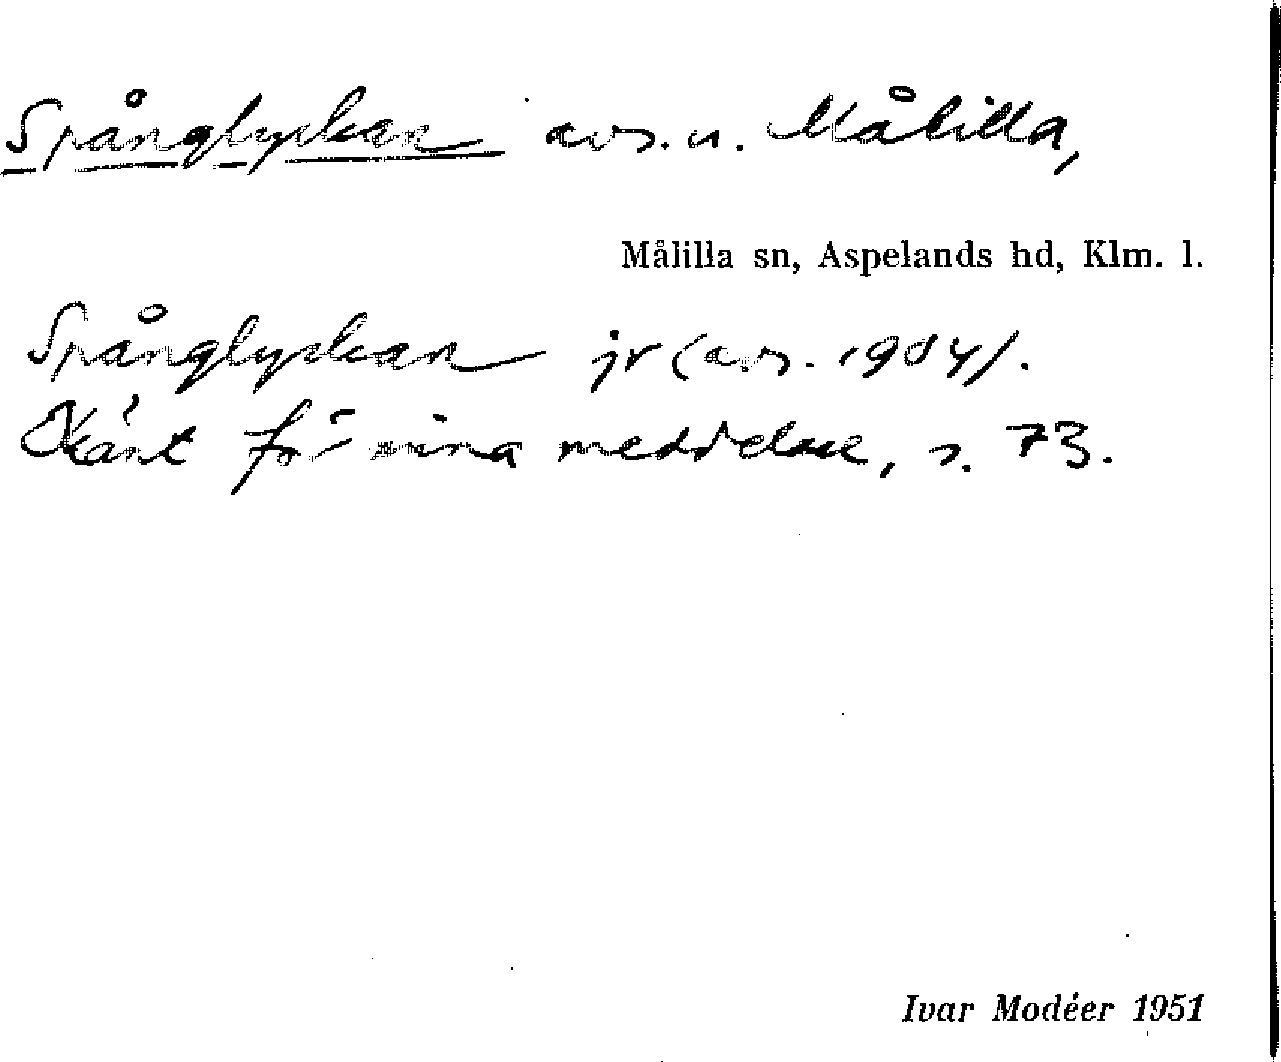 Spånglyckan avs. u. Målilla,
Målilla sn, Aspelands hd, Klm. l.
Spånglyckan jr (avs. 1904).
Känt för mina meddelare, s. 73.
Ivar Modéer 1951